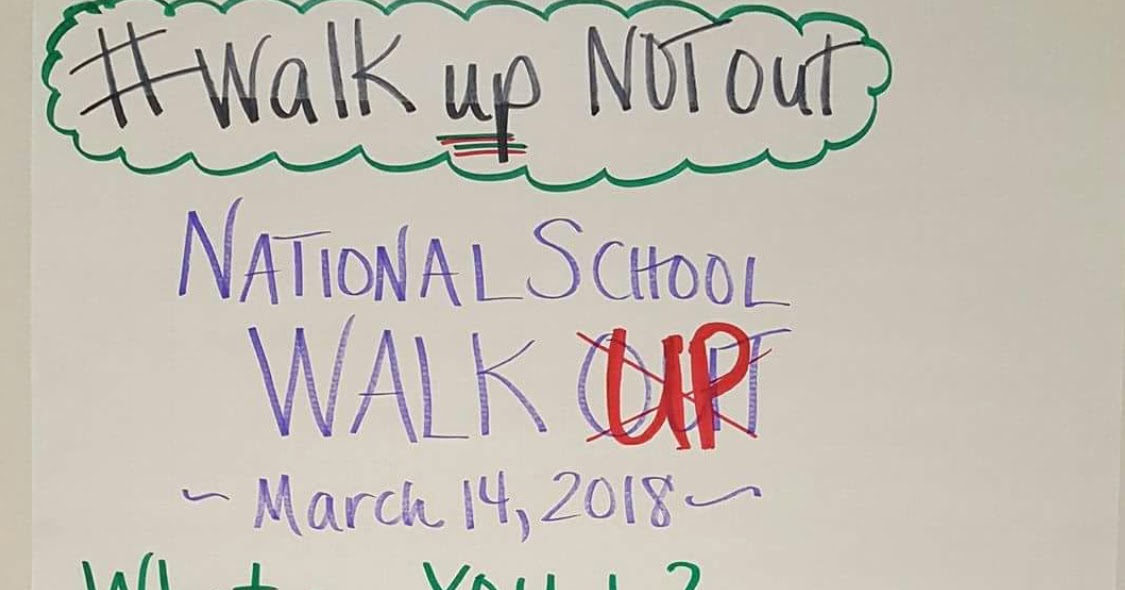 #Walk up NOT out
NATIONAL SCHOOL
WALK OUT UP
~ March 14, 2018 ~